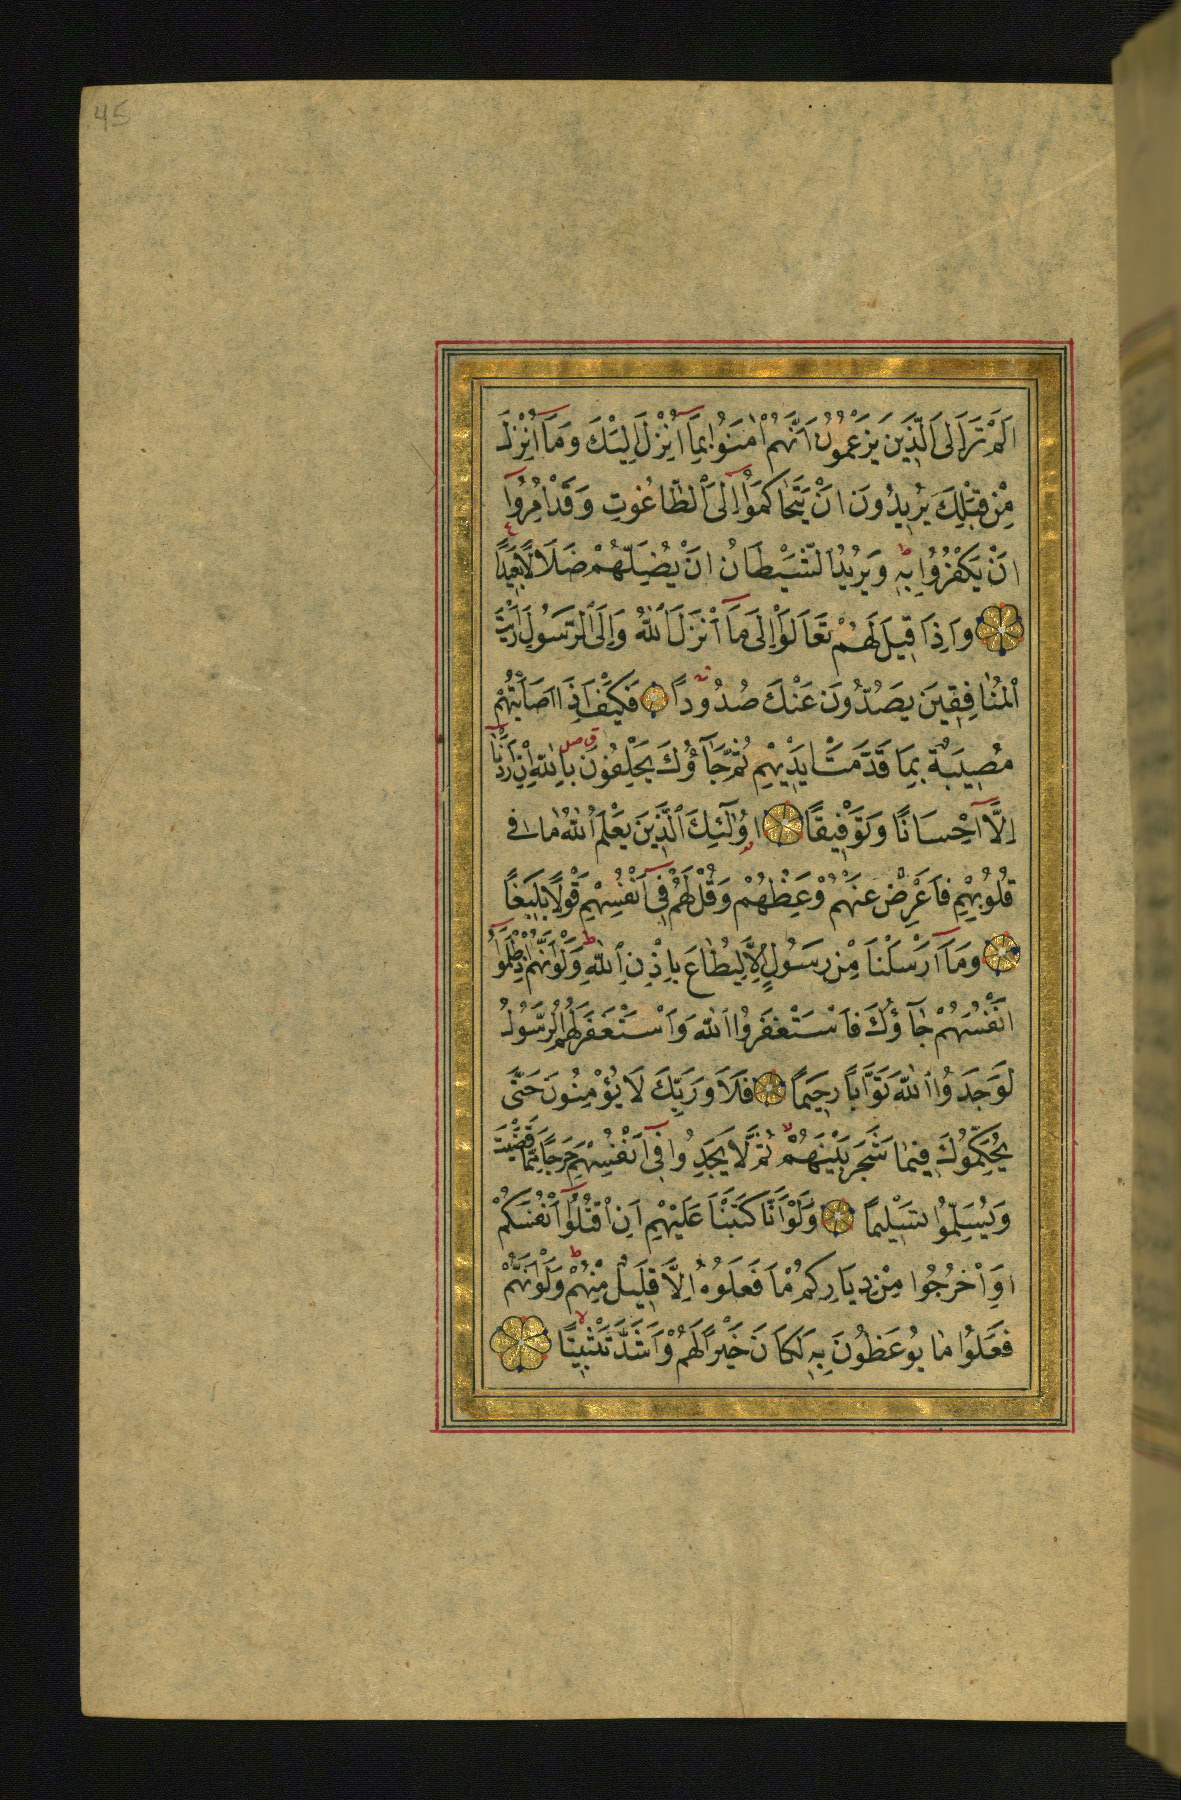 45
اَلَمْ تَرَ اِلَى الَّذِينَ يَزْعُمُونَ اَنَّهُمْ اٰمَنُوا بِمَآ اُنْزِلَ اِلَيْكَ وَمَآ اُنْزِلَ
مِنْ قَبْلِكَ يُرِيدُونَ اَنْ يَتَحَاكَمُوٓا اِلَى الطَّاغُوتِ وَقَدْ اُمِرُوٓا
اَنْ يَكْفُرُوا بِهٖ ط وَيُرِيدُ الشَّيْطَانُ اَنْ يُضِلَّهُمْ ضَلَالًا بَعِيدًا
وَاِذَا قِيلَ لَهُمْ تَعَالَوْا اِلٰى مَآ اَنْزَلَ اللّٰهُ وَاِلَى الرَّسُولِ رَاَيْتَ
الْمُنَافِقِينَ يَصُدُّونَ عَنْكَ صُدُودًا فَكَيْفَ اِذَآ اَصَابَتْهُمْ
مُصِيبَةٌ بِمَا قَدَّمَتْ اَيْدِيهِمْ ثُمَّ جَآؤُكَ يَحْلِفُونَ بِاللّٰهِ اِنْ اَرَدْنَآ
اِلَّآ اِحْسَانًا وَتَوْفِيقًا اُولٰٓئِكَ الَّذِينَ يَعْلَمُ اللّٰهُ مَا فِى
قُلُوبِهِمْ فَاَعْرِضْ عَنْهُمْ وَعِظْهُمْ وَقُلْ لَهُمْ فِىٓ اَنْفُسِهِمْ قَوْلًا بَلِيغًا
وَمَآ اَرْسَلْنَا مِنْ رَسُولٍ اِلَّا لِيُطَاعَ بِاِذْنِ اللّٰهِ ط وَلَوْ اَنَّهُمْ اِذْ ظَلَمُوٓا
اَنْفُسَهُمْ جَآؤُكَ فَاسْتَغْفَرُوا اللّٰهَ وَاسْتَغْفَرَ لَهُمُ الرَّسُولُ
لَوَجَدُوا اللّٰهَ تَوَّابًا رَحِيمًا فَلَا وَرَبِّكَ لَا يُؤْمِنُونَ حَتّٰى
يُحَكِّمُوكَ فِيمَا شَجَرَ بَيْنَهُمْ ثُمَّ لَا يَجِدُوا فِىٓ اَنْفُسِهِمْ حَرَجًا مِمَّا قَضَيْتَ
وَيُسَلِّمُوا تَسْلِيمًا وَلَوْ اَنَّا كَتَبْنَا عَلَيْهِمْ اَنِ اقْتُلُوٓا اَنْفُسَكُمْ
اَوِ اخْرُجُوا مِنْ دِيَارِكُمْ مَا فَعَلُوهُ اِلَّا قَلِيلٌ مِنْهُمْ ط وَلَوْ اَنَّهُمْ
فَعَلُوا مَا يُوعَظُونَ بِهٖ لَكَانَ خَيْرًا لَهُمْ وَاَشَدَّ تَثْبِيتًا